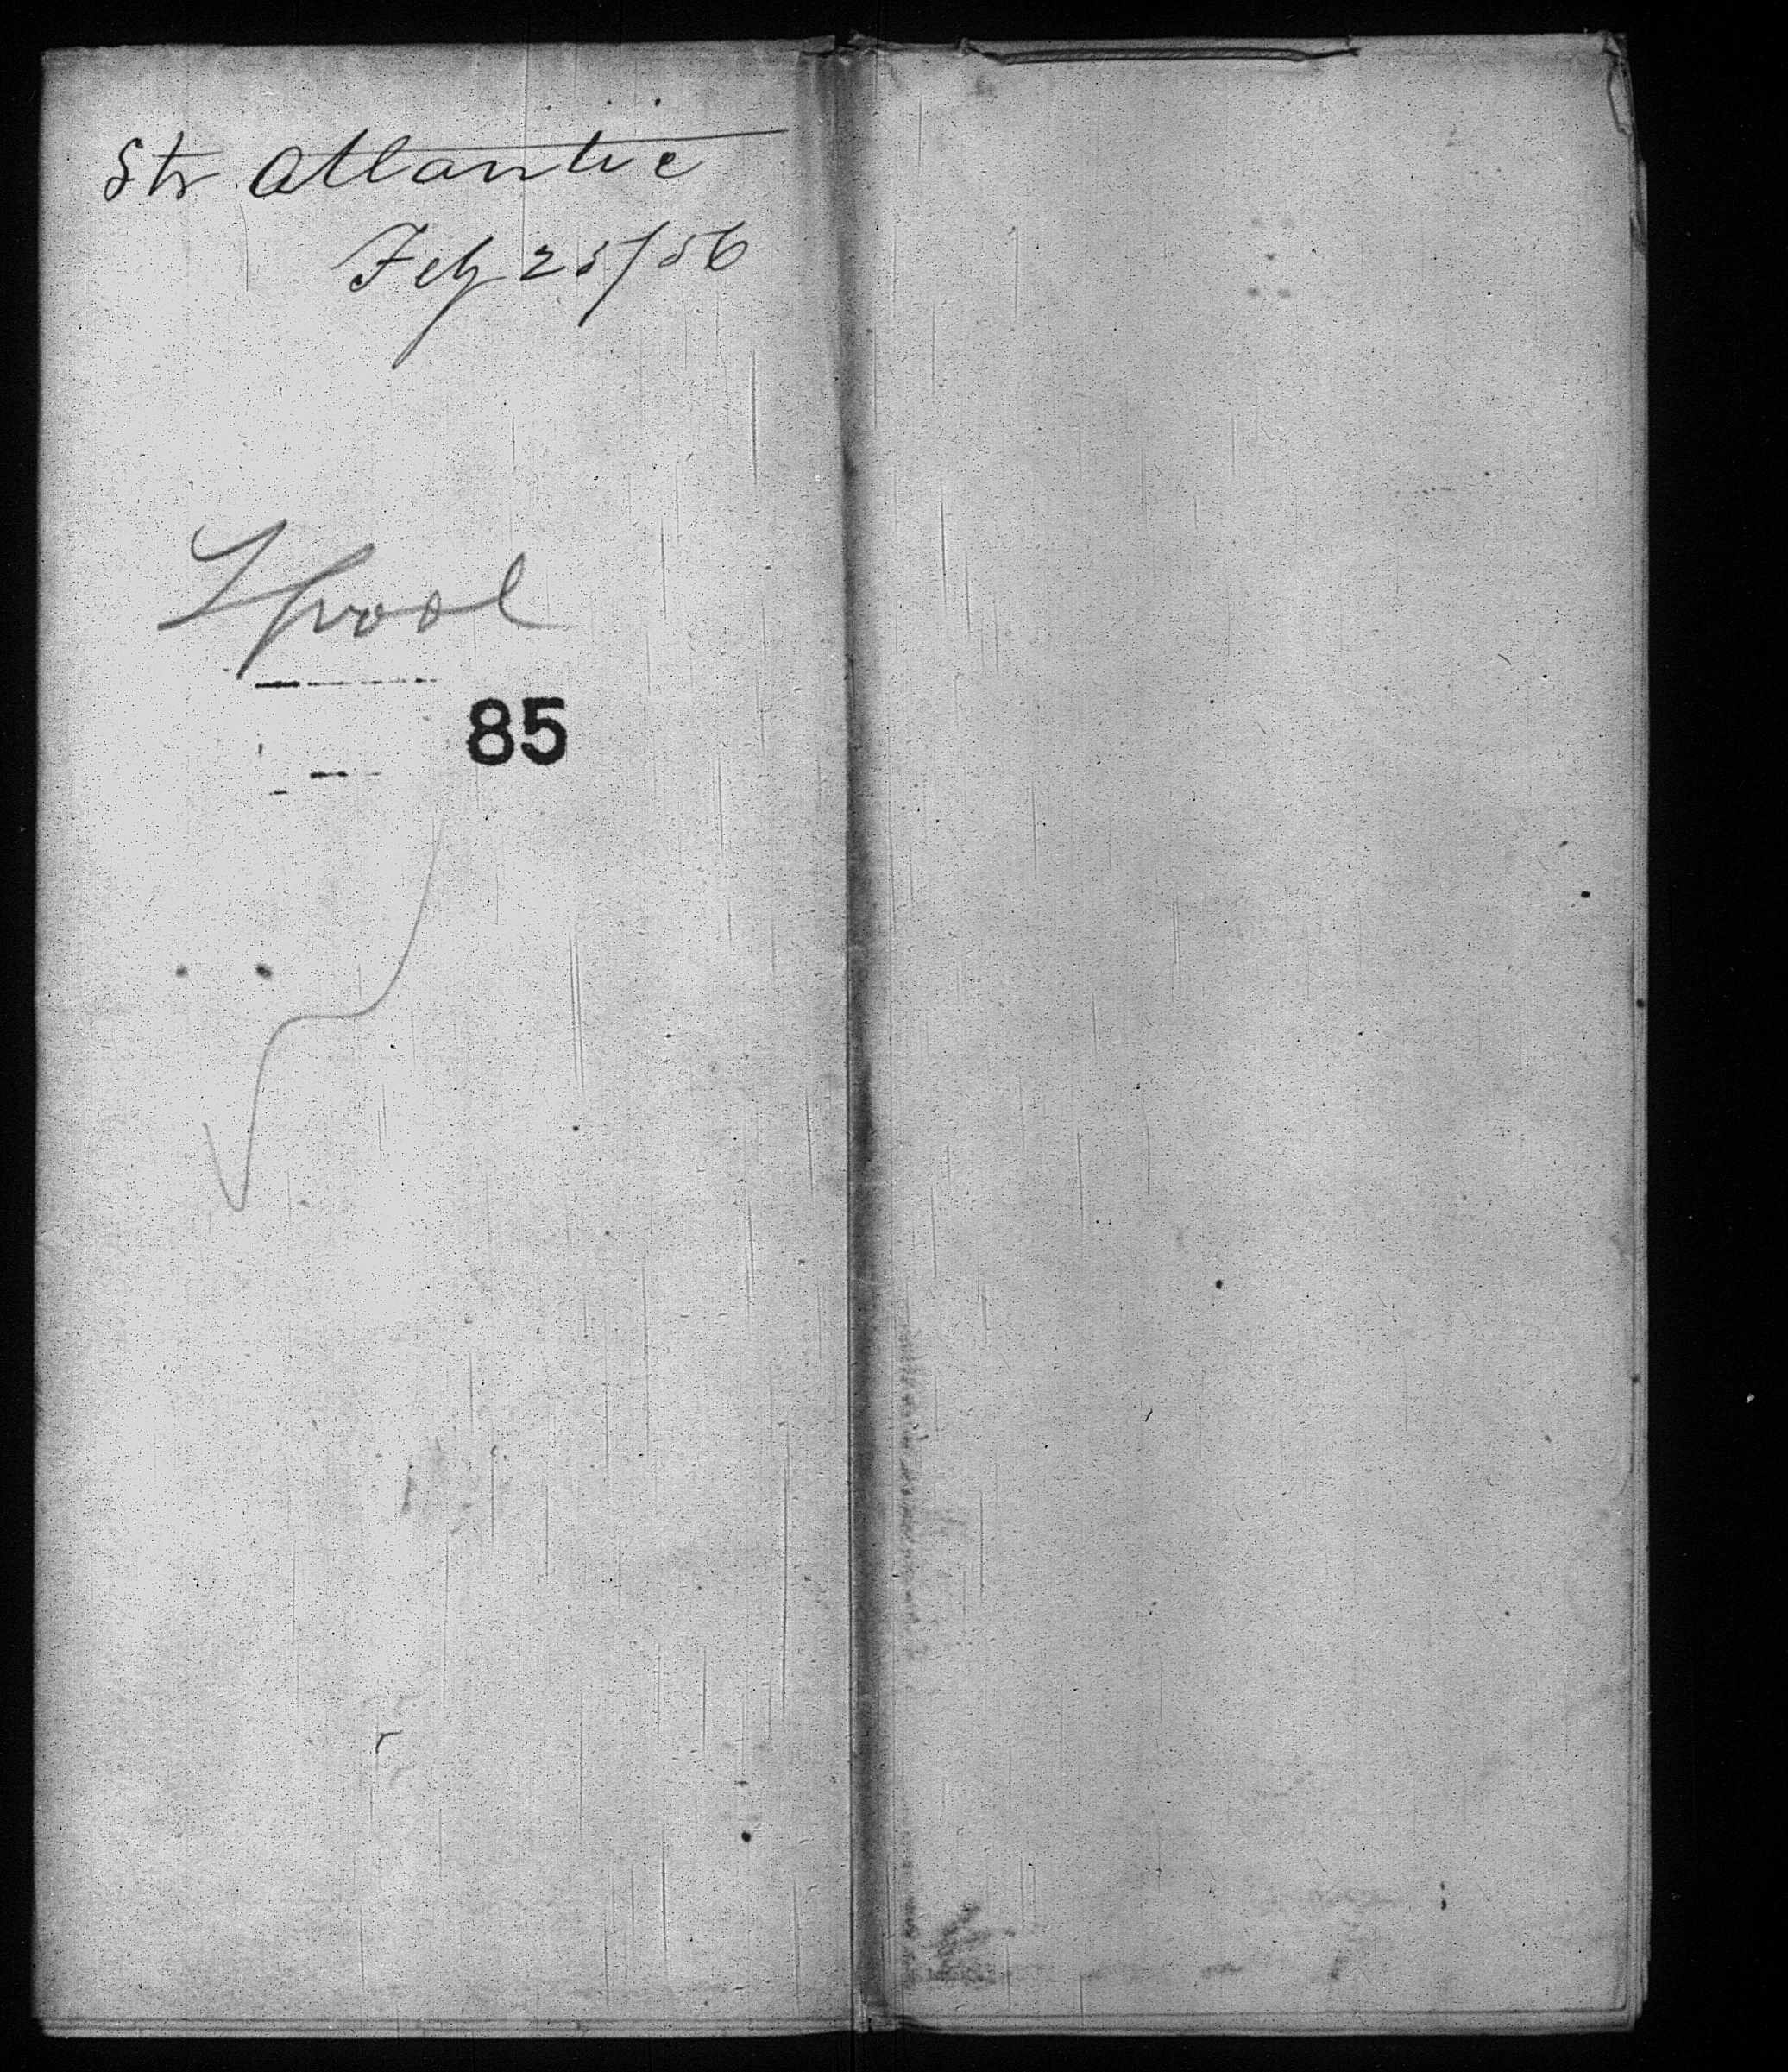 Str Atlantic
Feby 25/56
Lpool
85